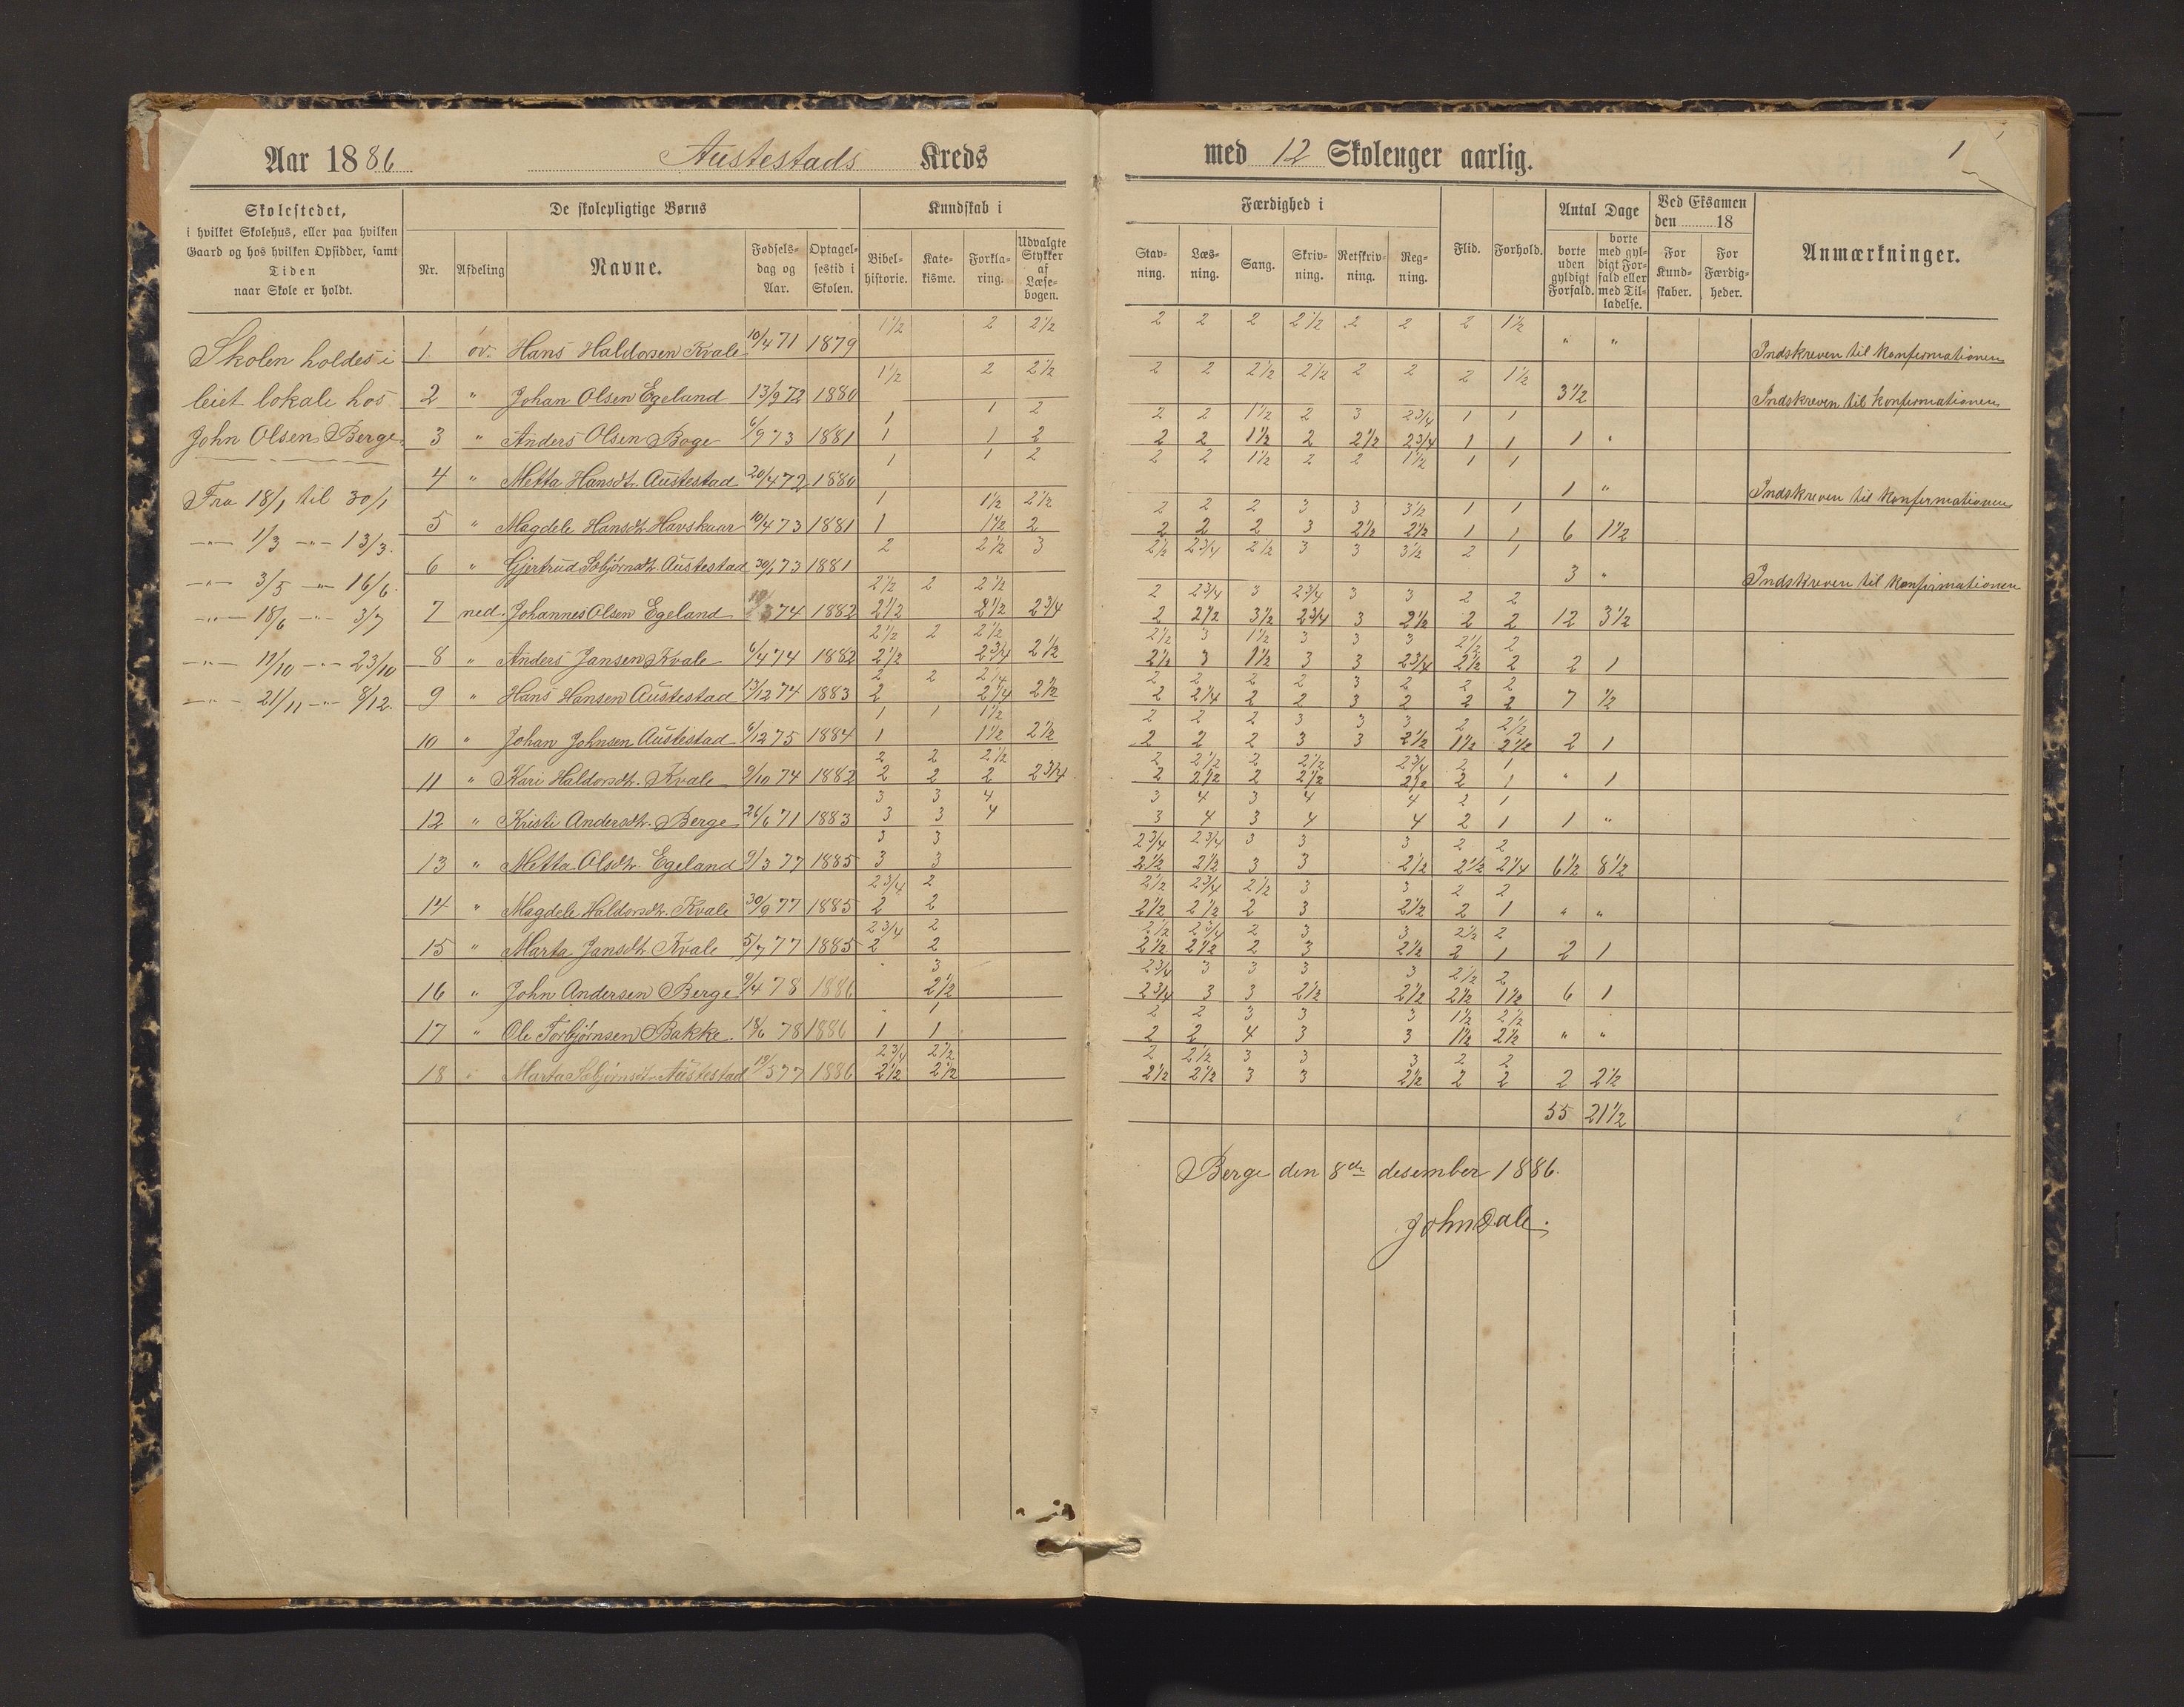 Aar 1886 Austestads Kreds med 12 Skoleuger aarlig. 1
Skolestedet,
i hvilket Skolehus, eller paa hvilken
Gaard og hos hvilken Opsidder, samt
Tiden
naar Skole er holdt.
De skolepligtige Børns
Nr. Afdeling Navne. Fødsels-dag og Aar. Optagel-sestid i Skolen.
Kundskab i
Bibel-historie. Kate-kisme. Forkla-ring. Udvalgte Stykker af Læse-bogen.
Færdighed i
Stav-ning. Læs-ning. Sang. Skriv-ning. Retskriv-ning. Reg-ning.
Flid. Forhold.
Antal Dage
borte uden gyldigt Forfald. borte med gyl-digt For-fald eller med Til-ladelse.
Ved Eksamen den 18
For Kund-skaber. For Færdig-heder.
Anmærkninger.
Skolen holdes i
leiet lokale hos
John Olsen Berge.
Fra 18/1 til 30/1
-"- 1/3 -"- 13/3.
-"- 3/5 -"- 16/6.
-"- 18/6 -"- 3/7
-"- 11/10 -"- 23/10
-"- 21/11 -"- 8/12.
1½ 2 2½ 2 2 2 2½ 2 2 2 1½
1. öv. Hans Haldorsen Kvale 10/4 71 1879 " " Indskreven til Konfirmationen
1½ 2 2½ 2 2 2½ 2½ 2 2 2 1½
2 " Johan Olsen Egeland 13/9 72 1880 3½ Indskreven til Konfirmationen
1 1 2 2 2 1½ 2 3 2¾ 1 1
3 " Anders Olsen Boge 6/9 73 1881 1 1 2 2 2 1½ 2 2½ 2¾ 1 1 1 "
1 1 2 2 2 1½ 2 2 1½ 1 1
4 " Metta Hansdtr. Austestad 20/4 72 1880 1 " Indskreven til Konfirmationen
1 1½ 2½ 2 2 2 3 3 3½ 1 1
5 " Magdele Hansdtr. Havskaar 10/4 73 1881 1 1½ 2 2 2 2 3 2½ 2½ 1 1 6 1½
2 2½ 3 2½ 2¾ 2½ 3 3 3½ 2 1
6 " Gjertrud Sebjørnsdtr. Austestad 30/1 73 1881 3 " Indskreven til Konfirmationen
2½ 2 2½ 2 2¾ 3 2¾ 3 3 2 2
7 ned. Johannes Olsen Egeland 3 74 1882 2½ 2½ 2¾ 2 2½ 3½ 2¾ 3 2½ 2 2 12 3½
2½ 2 2½ 2½ 3 1½ 3 3 3 2½ 2
8 " Anders Jansen Kvale 6/4 74 1882 2½ 2¾ 2½ 2½ 3 1½ 3 3 2¾ 2½ 2 2 1
2 2 2¼ 2 2 2 2 3 2 2 2
9 " Hans Hansen Austestad 13/12 74 1883 2 2¼ 2½ 2 2¼ 2 2 3 2 2 2 7 ½
1 1 1½ 2 2 2 3 3 3 2 2½
10 " Johan Johnsen Austestad 6/12 75 1884 1 1½ 2½ 2 2 2 3 3 2½ 1½ 2½ 2 1
2 2 2½ 2 2½ 2 2½ 2¾ 2 1
11 " Kari Haldorsdtr. Kvale 9/10 74 1882 2 2 2 2¾ 2 2½ 2 2½ 2½ 2 1 " 1
3 3 4 3 4 3 4 4 2 1
12 " Kristi Andersdtr. Berge 26/6 71 1883 3 3 4 3 4 3 4 4 2 1 1 "
3 3 2¾ 2¾ 3 3 3 2 2
13 " Metta Olsdtr. Egeland 9/3 77 1885 3 3 2½ 2½ 3 3 2½ 2½ 2¼ 6½ 8½
2¾ 2 2½ 2¾ 2½ 3 3 2 2
14 " Magdele Haldorsdtr. Kvale 30/9 77 1885 2 2 2½ 2½ 2 3 2½ 2 1 " "
2¾ 2 2½ 2¾ 2 3 3 2½ 2
15 " Marta Jansdtr. Kvale 5/7 77 1885 2 2 2½ 2½ 2 3 2½ 2 1 2 1
" 3 2¾ 3 3 3 3 2½ 2
16 " John Andersen Berge 9/4 78 1886 2½ 2¾ 3 3 2½ 2½ 2½ 1½ 6 1
" 1 2 2 3 3 3 1½ 2½
17 " Ole Torbjørnsen Bakke. 18/6 78 1886 1 1 2 2 4 3 3 1½ 2½ " "
2¾ 2½ 2 2½ 3 3 3 2 2
18 " Marta Sebjørnsdtr. Austestad 19/5 77 1886 2½ 2½ 2½ 2½ 3 3 2½ 2 2 2 2½
55 21½
Berge den 8de desember 1886.
John Dale.